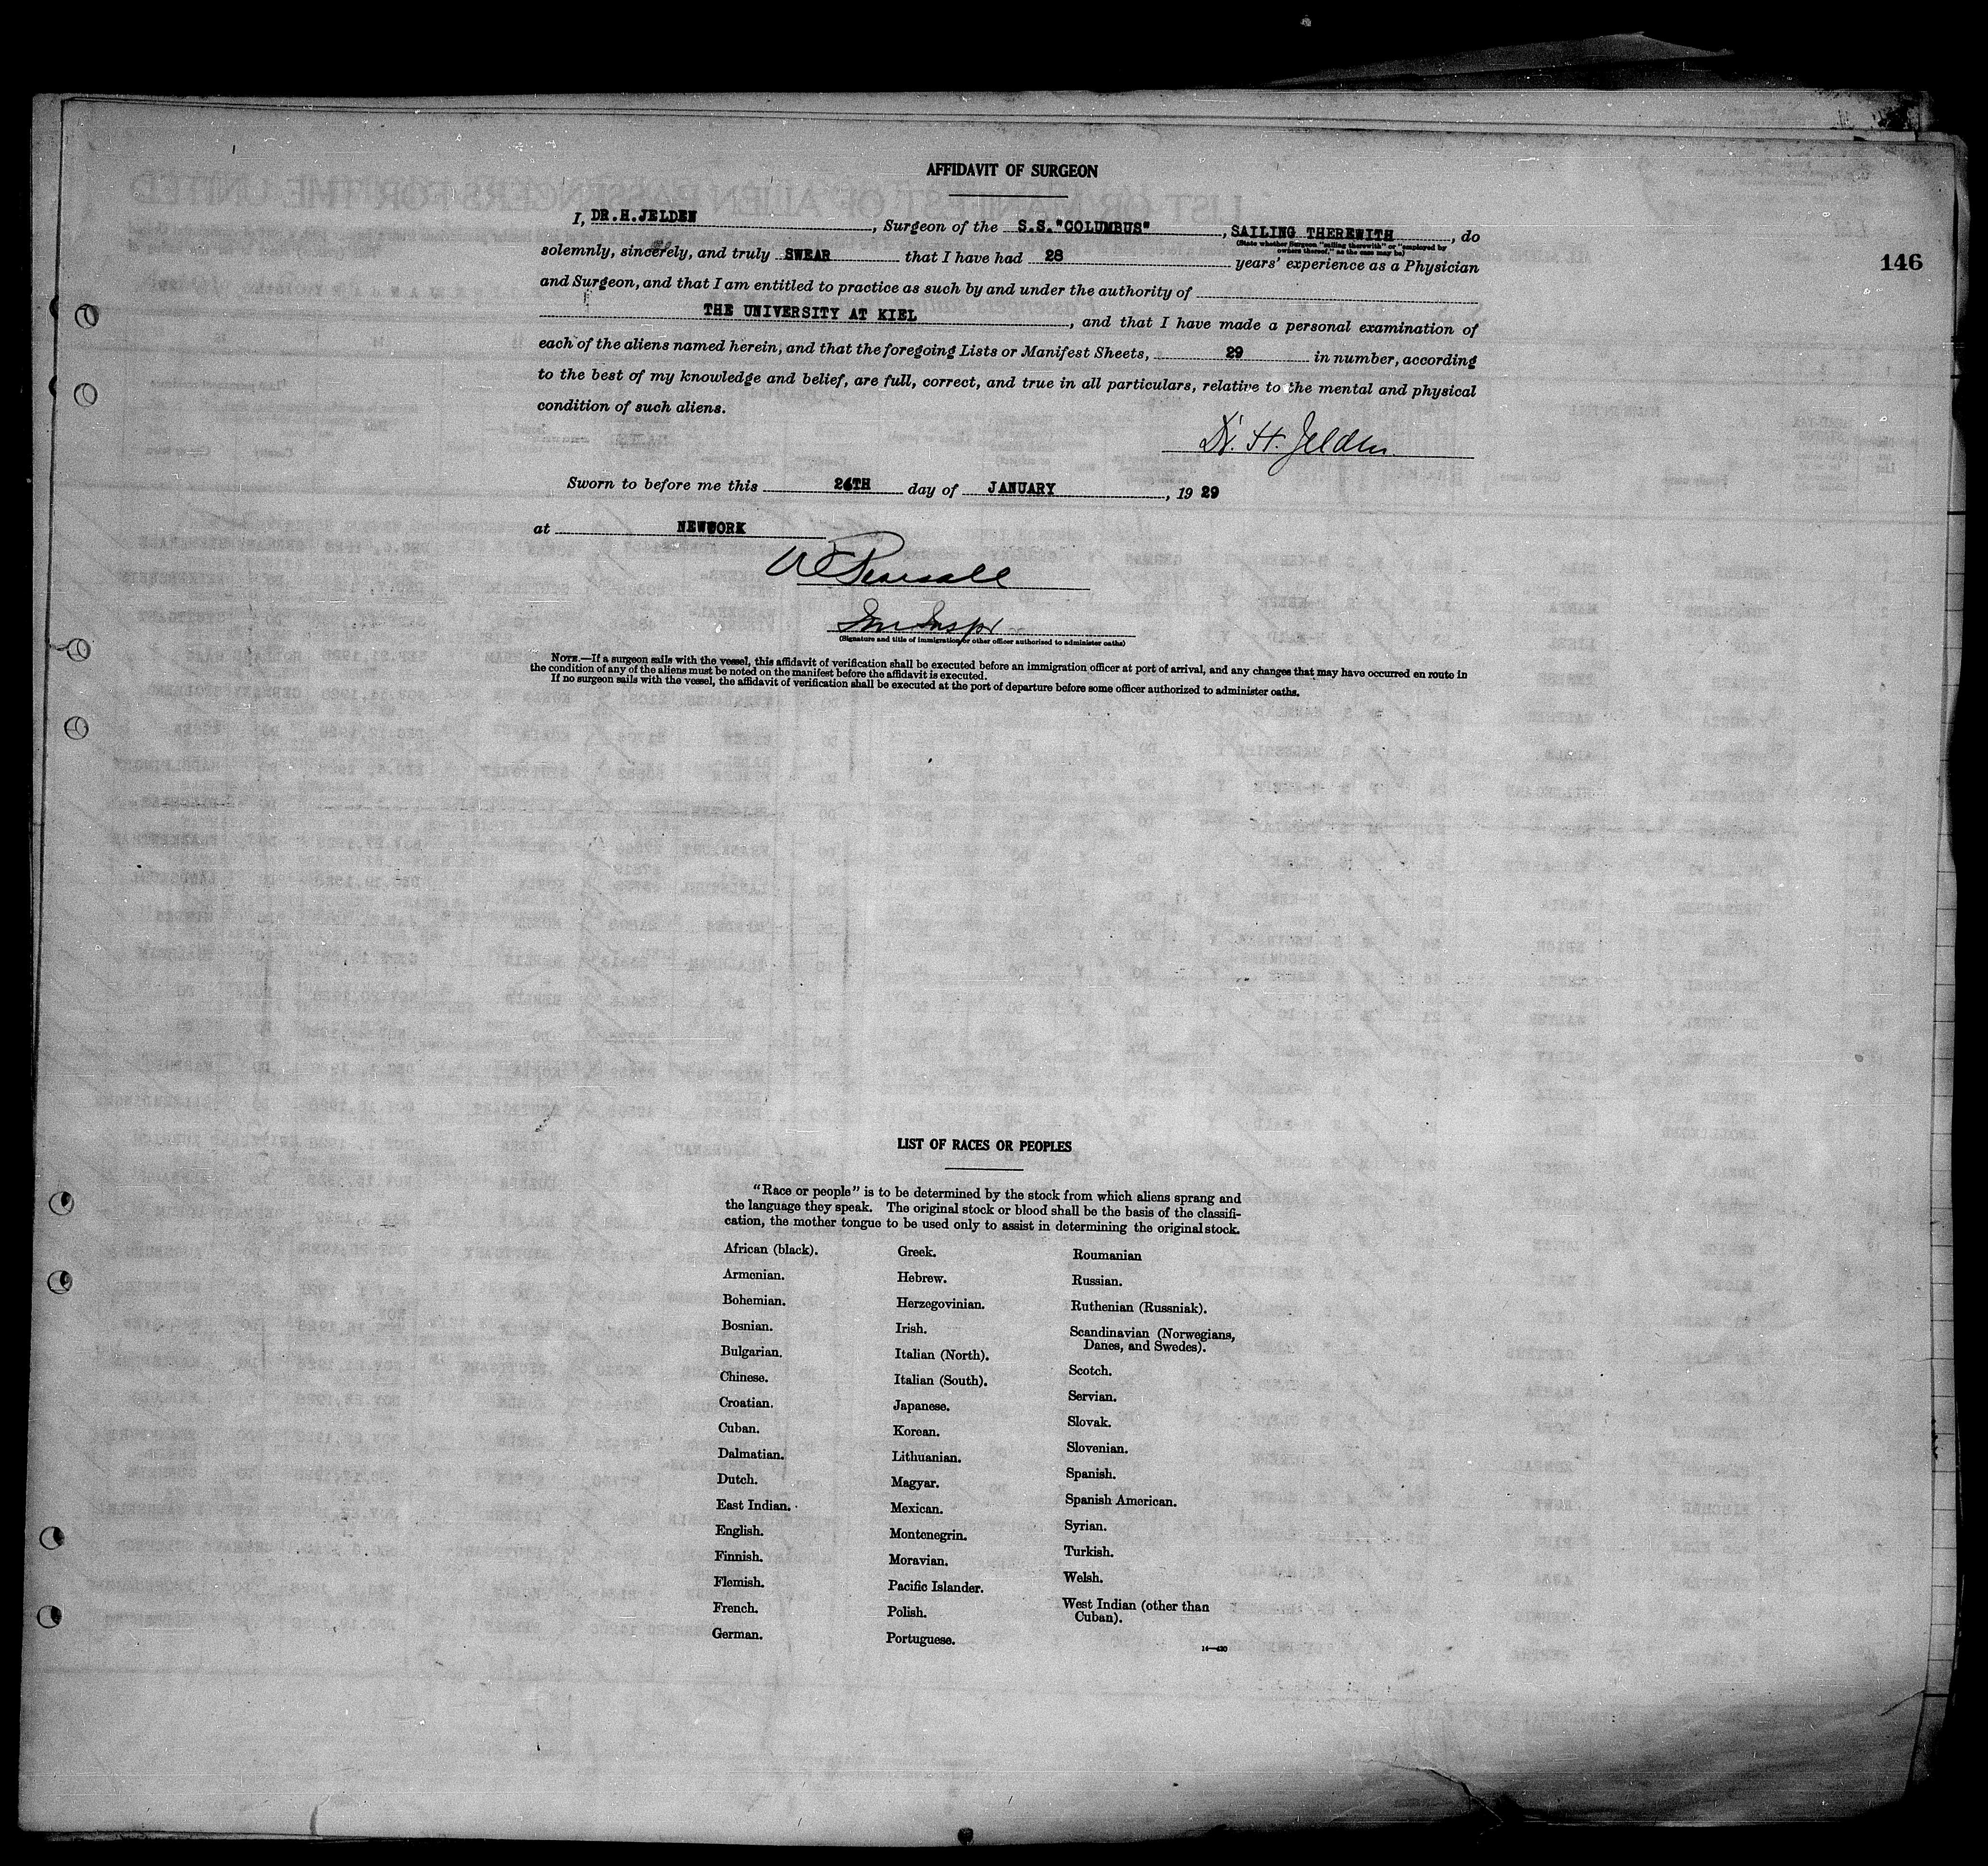 AFFIDAVIT OF SURGEON
I, DR.H.JELDEN, Surgeon of the S.S."COLUMBUS", SAILING THEREWITH, do
(State whether Surgeon "sailing therewith" or "employed by
owners thereof," as the case may be)
solemnly, sincerely, and truly SWEAR that I have had 28 years' experience as a Physician
146
and Surgeon, and that I am entitled to practice as such by and under the authority of
THE UNIVERSITY AT KIEL, and that I have made a personal examination of
each of the aliens named herein, and that the foregoing Lists or Manifest Sheets, 29 in number, according
to the best of my knowledge and belief, are full, correct, and true in all particulars, relative to the mental and physical
condition of such aliens.
Dr. H. Jelden
Sworn to before me this 26TH day of JANUARY, 1929
at NEWYORK
Imm Inspr
(Signature and title of immigration or other officer authorized to administer oaths)
NOTE.—If a surgeon sails with the vessel, this affidavit of verification shall be executed before an immigration officer at port of arrival, and any changes that may have occurred en route in
the condition of any of the aliens must be noted on the manifest before the affidavit is executed.
If no surgeon sails with the vessel, the affidavit of verification shall be executed at the port of departure before some officer authorized to administer oaths.
LIST OF RACES OR PEOPLES
"Race or people" is to be determined by the stock from which aliens sprang and
the language they speak. The original stock or blood shall be the basis of the classifi-
cation, the mother tongue to be used only to assist in determining the original stock.
African (black).
Armenian.
Bohemian.
Bosnian.
Bulgarian.
Chinese.
Croatian.
Cuban.
Dalmatian.
Dutch.
East Indian.
English.
Finnish.
Flemish.
French.
German.
Greek.
Hebrew.
Herzegovinian.
Irish.
Italian (North).
Italian (South).
Japanese.
Korean.
Lithuanian.
Magyar.
Mexican.
Montenegrin.
Moravian.
Pacific Islander.
Polish.
Portuguese.
Roumanian
Russian.
Ruthenian (Russniak).
Scandinavian (Norwegians,
Danes, and Swedes).
Scotch.
Servian.
Slovak.
Slovenian.
Spanish.
Spanish American.
Syrian.
Turkish.
Welsh.
West Indian (other than
Cuban).
14—430